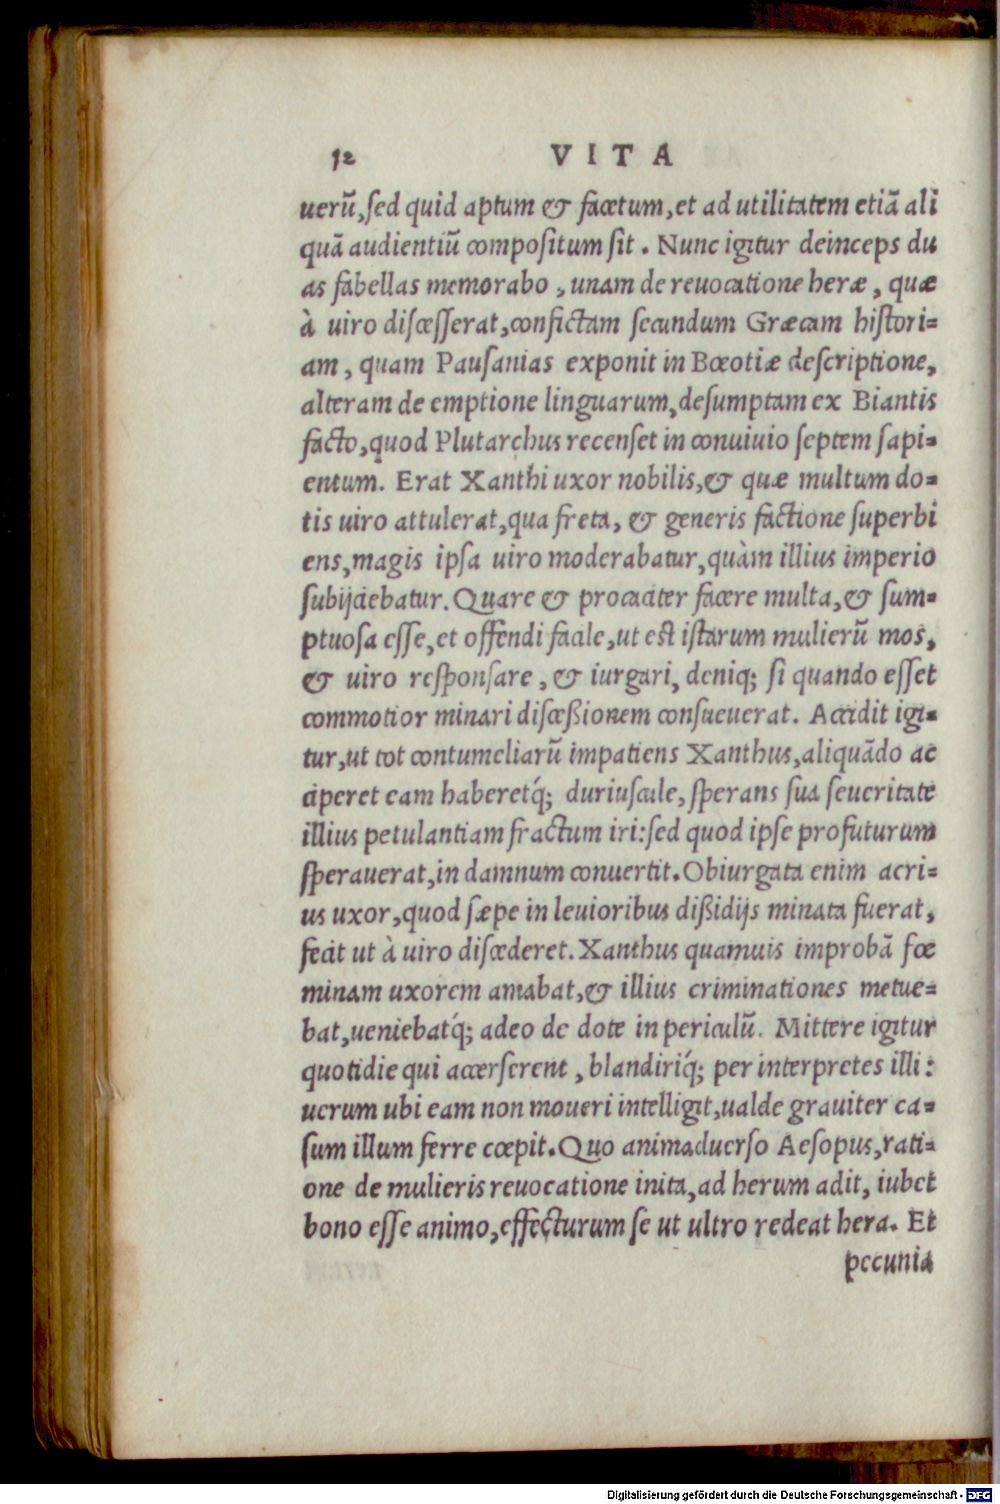 12 VITA
uerũ, sed quid aptum & facetum, et ad utilitatem etiã ali
quã audientiũ compositum sit. Nunc igitur deinceps du
as fabellas memorabo, unam de reuocatione heræ, quæ
à uiro discesserat, confictam secundum Græcam histori=
am, quam Pausanias exponit in Bœotiæ descriptione,
alteram de emptione linguarum, desumptam ex Biantis
facto, quod Plutarchus recenset in conuiuio septem sapi=
entum. Erat Xanthi uxor nobilis, & quæ multum do=
tis uiro attulerat, qua freta, & generis factione superbi
ens, magis ipsa uiro moderabatur, quàm illius imperio
subijciebatur. Quare & procaciter facere multa, & sum=
ptuosa esse, et offendi facile, ut est istarum mulierũ mos,
& uiro responsare, & iurgari, deniq; si quando esset
commotior minari disceßionem consueuerat. Accidit igi=
tur, ut tot contumeliarũ impatiens Xanthus, aliquãdo ac
ciperet eam haberetq́; duriuscule, sperans sua seueritate
illius petulantiam fractum iri: sed quod ipse profuturum
sperauerat, in damnum conuertit. Obiurgata enim acri=
us uxor, quod sæpe in leuioribus dißidijs minata fuerat,
fecit ut à uiro discederet. Xanthus quamuis improbã fœ
minam uxorem amabat, & illius criminationes metue=
bat, ueniebatq́; adeo de dote in periculũ. Mittere igitur
quotidie qui accerserent, blandiriq́; per interpretes illi:
uerum ubi eam non moueri intelligit, ualde grauiter ca=
sum illum ferre cœpit. Quo animaduerso Aesopus, rati=
one de mulieris reuocatione inita, ad herum adit, iubet
bono esse animo, effecturum se ut ultro redeat hera. Et
pecunia
Digitalisierung gefördert durch die Deutsche Forschungsgemeinschaft - DFG